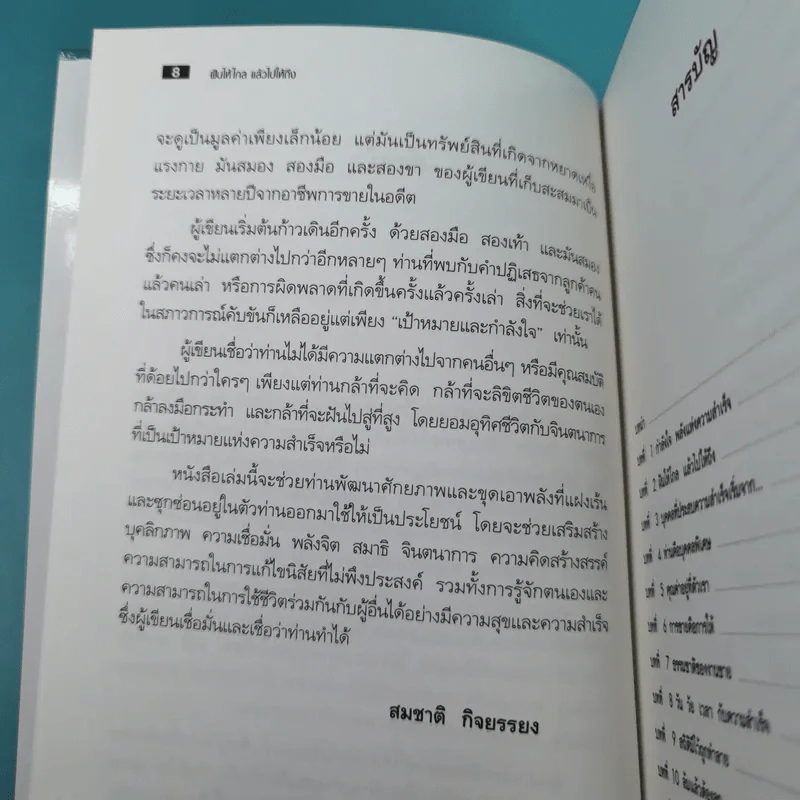 8 ฝันให้ไกล แล้วไปให้ถึง
จะดูเป็นมูลค่าเพียงเล็กน้อย แต่มันเป็นทรัพย์สินที่เกิดจากหยาดเหงื่อ
แรงกาย มันสมอง สองมือ และสองขา ของผู้เขียนที่เก็บสะสมมาเป็น
ระยะเวลาหลายปีจากอาชีพการขายในอดีต
ผู้เขียนเริ่มต้นก้าวเดินอีกครั้ง ด้วยสองมือ สองเท้า และมันสมอง
ซึ่งก็คงจะไม่แตกต่างไปกว่าอีกหลายๆ ท่านที่พบกับคำปฏิเสธจากลูกค้าคน
แล้วคนเล่า หรือการผิดพลาดที่เกิดขึ้นครั้งแล้วครั้งเล่า สิ่งที่จะช่วยเราได้
ในสภาวการณ์คับขันก็เหลืออยู่แต่เพียง “เป้าหมายและกำลังใจ” เท่านั้น
ผู้เขียนเชื่อว่าท่านไม่ได้มีความแตกต่างไปจากคนอื่นๆ หรือมีคุณสมบัติ
ที่ด้อยไปกว่าใครๆ เพียงแต่ท่านกล้าที่จะคิด กล้าที่จะลิขิตชีวิตของตนเอง
กล้าลงมือกระทำ และกล้าที่จะฝันไปสู่ที่สูง โดยยอมอุทิศชีวิตกับจินตนาการ
ที่เป็นเป้าหมายแห่งความสำเร็จหรือไม่
หนังสือเล่มนี้จะช่วยท่านพัฒนาศักยภาพและขุดเอาพลังที่แฝงเร้น
และซุกซ่อนอยู่ในตัวท่านออกมาใช้ให้เป็นประโยชน์ โดยจะช่วยเสริมสร้าง
บุคลิกภาพ ความเชื่อมั่น พลังจิต สมาธิ จินตนาการ ความคิดสร้างสรรค์
ความสามารถในการแก้ไขนิสัยที่ไม่พึงประสงค์ รวมทั้งการรู้จักตนเองและ
ความสามารถในการใช้ชีวิตร่วมกันกับผู้อื่นได้อย่างมีความสุขและความสำเร็จ
ซึ่งผู้เขียนเชื่อมั่นและเชื่อว่าท่านทำได้
สมชาติ กิจยรรยง
สารบัญ
บทนำ
บทที่ 1 กำลังใจ พลังแห่งความสำเร็จ
บทที่ 2 ฝันให้ไกล แล้วไปให้ถึง
บทที่ 3 บุคคลที่ประสบความสำเร็จเริ่มจาก...
บทที่ 4 ท่านคือบุคคลพิเศษ
บทที่ 5 คุณค่าอยู่ที่ตัวเรา
บทที่ 6 การขายคือการให้
บทที่ 7 ธรรมชาติของงานขาย
บทที่ 8 วัน วัย เวลา กับความสำเร็จ
บทที่ 9 สถิติมีไว้ถูกทำลาย
บทที่ 10 ล้มแล้วต้อง